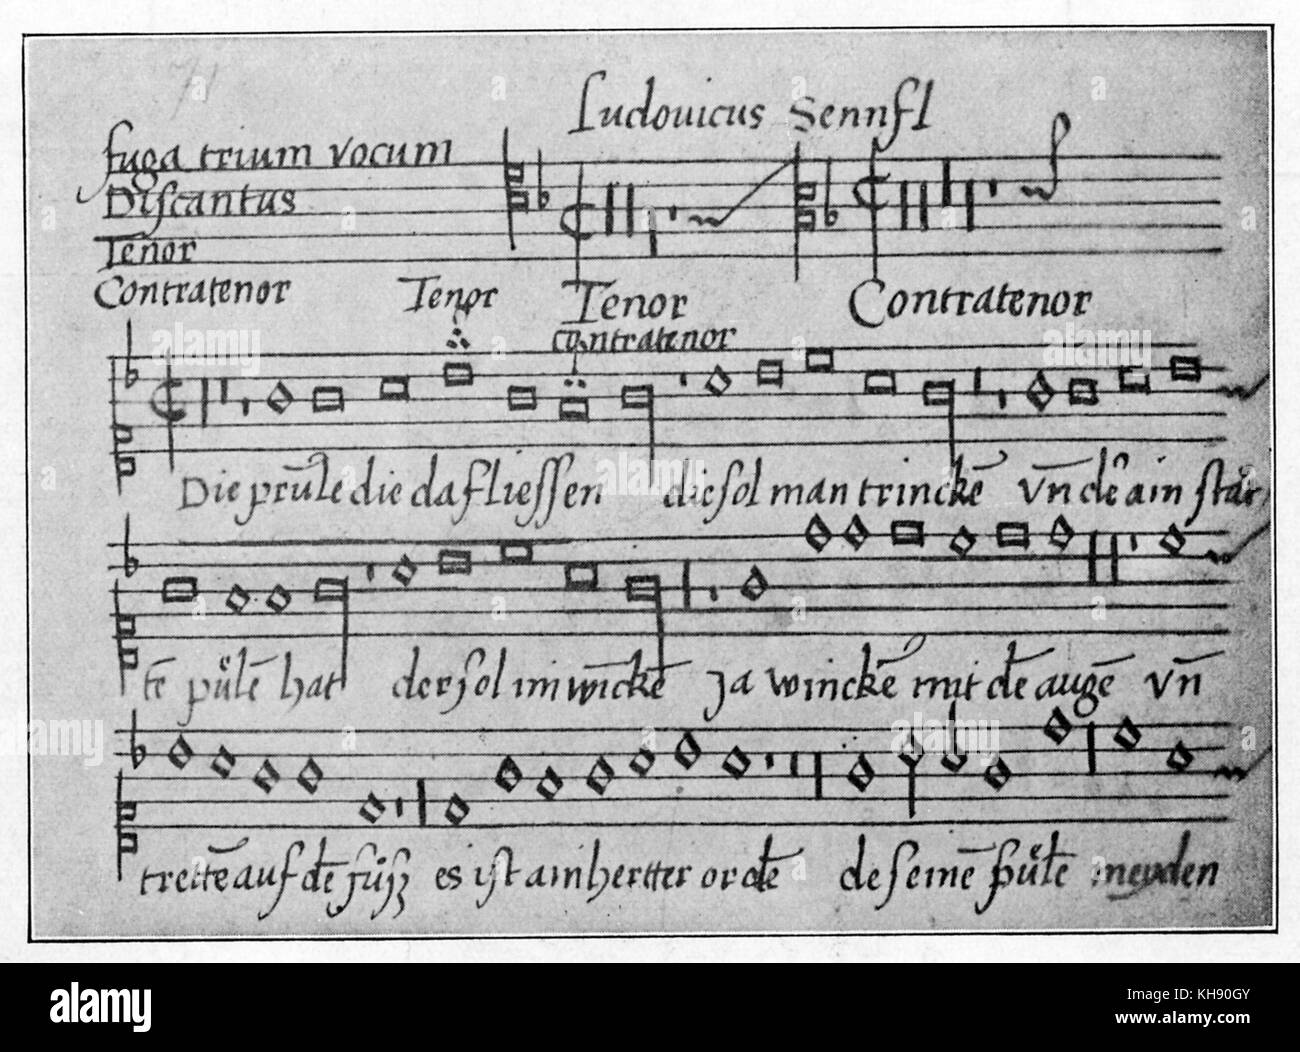 71
Ludovicus Sennfl
fuga trium vocum
Discantus
Tenor
Contratenor Tenor Tenor Contratenor
contratenor
Die prũ̈le die da fliessen die sol man trinckē vn̄ dē ain star
tē pü̈lē hat der sol im winckē Ja winckē mit dē augē vn̄
trettē auf dē füsz es ist ain hertter ordē de seinē pü̈lē meyden
alamy
Image ID: KH90GY
www.alamy.com